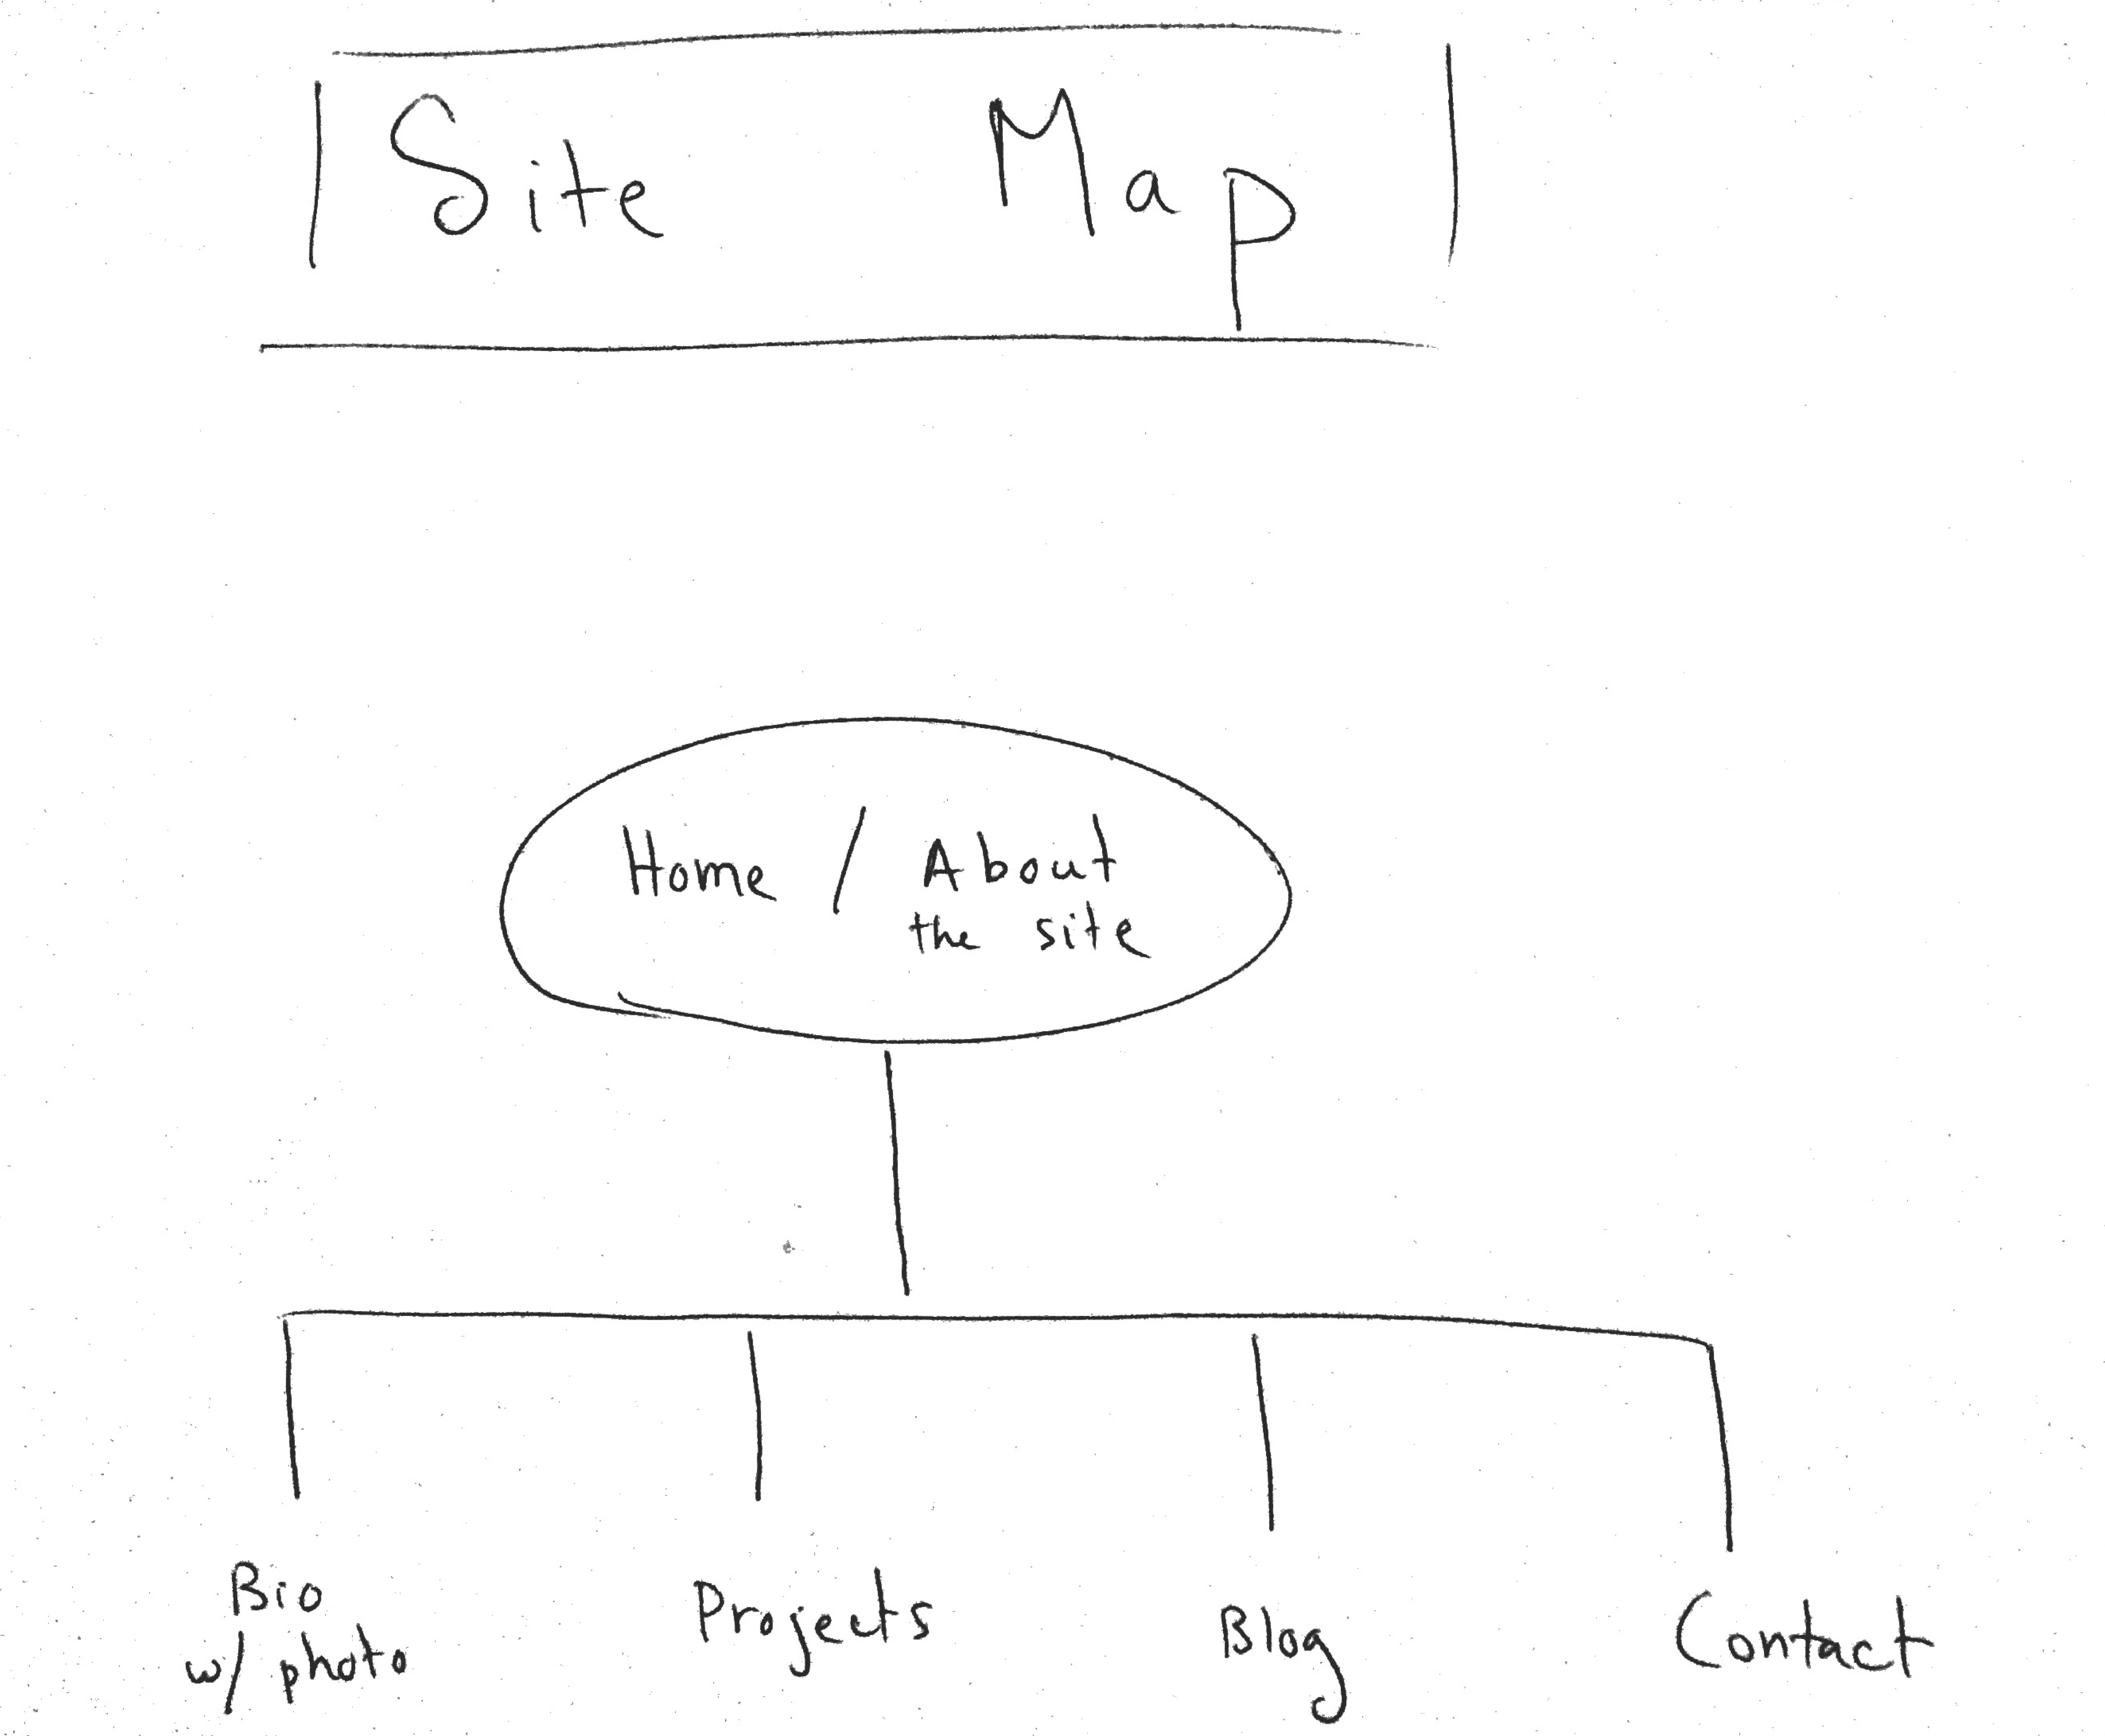 Site Map
Home / About
the site
Bio
w/ photo
Projects
Blog
Contact